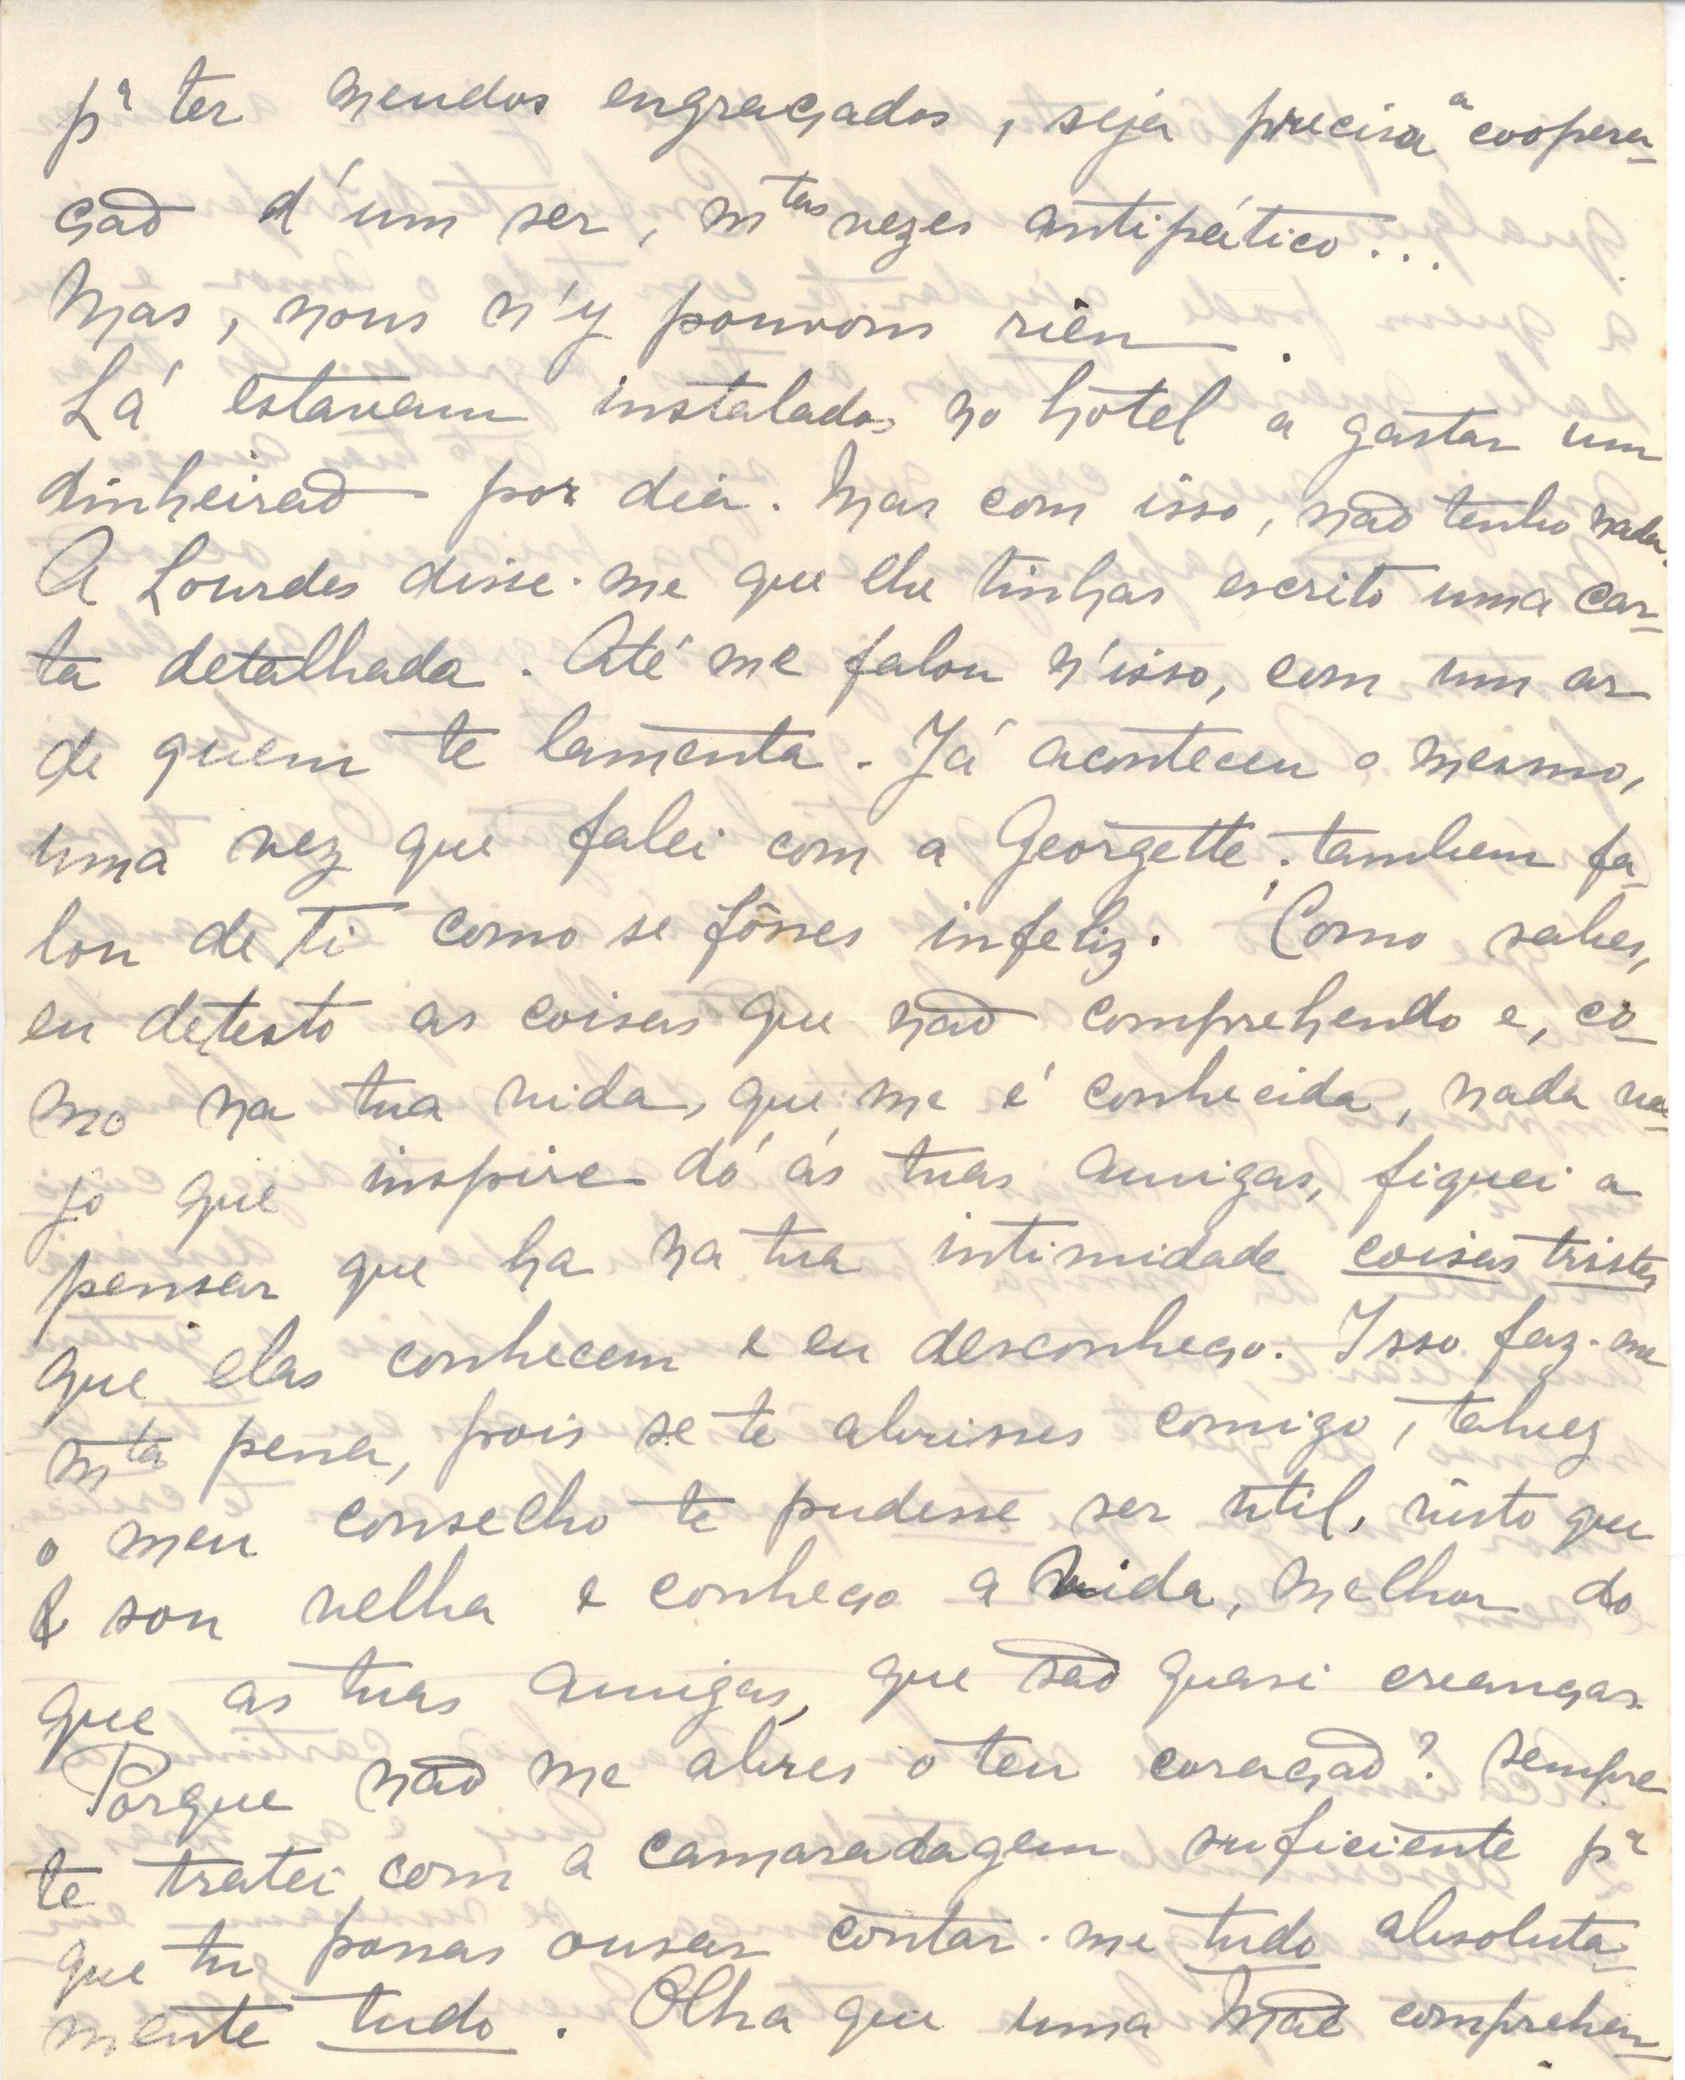 pª ter meudos engraçados, seja precisa a coopera-
ção d'um ser, mtas vezes antipático...
Mas, nous n'y pouvons rien.
Lá estavam instalados no hotel a gastar um
dinheirão por dia. Mas com isso, não tenho nada.
A Lourdes disse-me que lhe tinhas escrito uma car-
ta detalhada. Até me falou n'isso, com um ar
de quem te lamenta. Já aconteceu o mesmo,
uma vez que falei com a Georgette; tambem fa-
lou de ti como se fôsses infeliz. Como sabes,
eu detesto as coisas que não comprehendo e, co-
mo na tua vida, que me é conhecida, nada ve-
jo que inspire dó ás tuas amigas, fiquei a
pensar que ha na tua intimidade coisas tristes
que elas conhecem e eu desconheço. Isso faz-me
mta pena, pois se te abrisses comigo, talvez
o meu conselho te pudesse ser util, visto que
sou velha e conheço a vida, melhor do
que as tuas amigas, que são quasi creanças.
Porque não me abres o teu coração? Sempre
te tratei com a camaradagem suficiente pª
que tu possas ousar contar-me tudo absoluta-
mente tudo. Olha que uma Mãe comprehen-